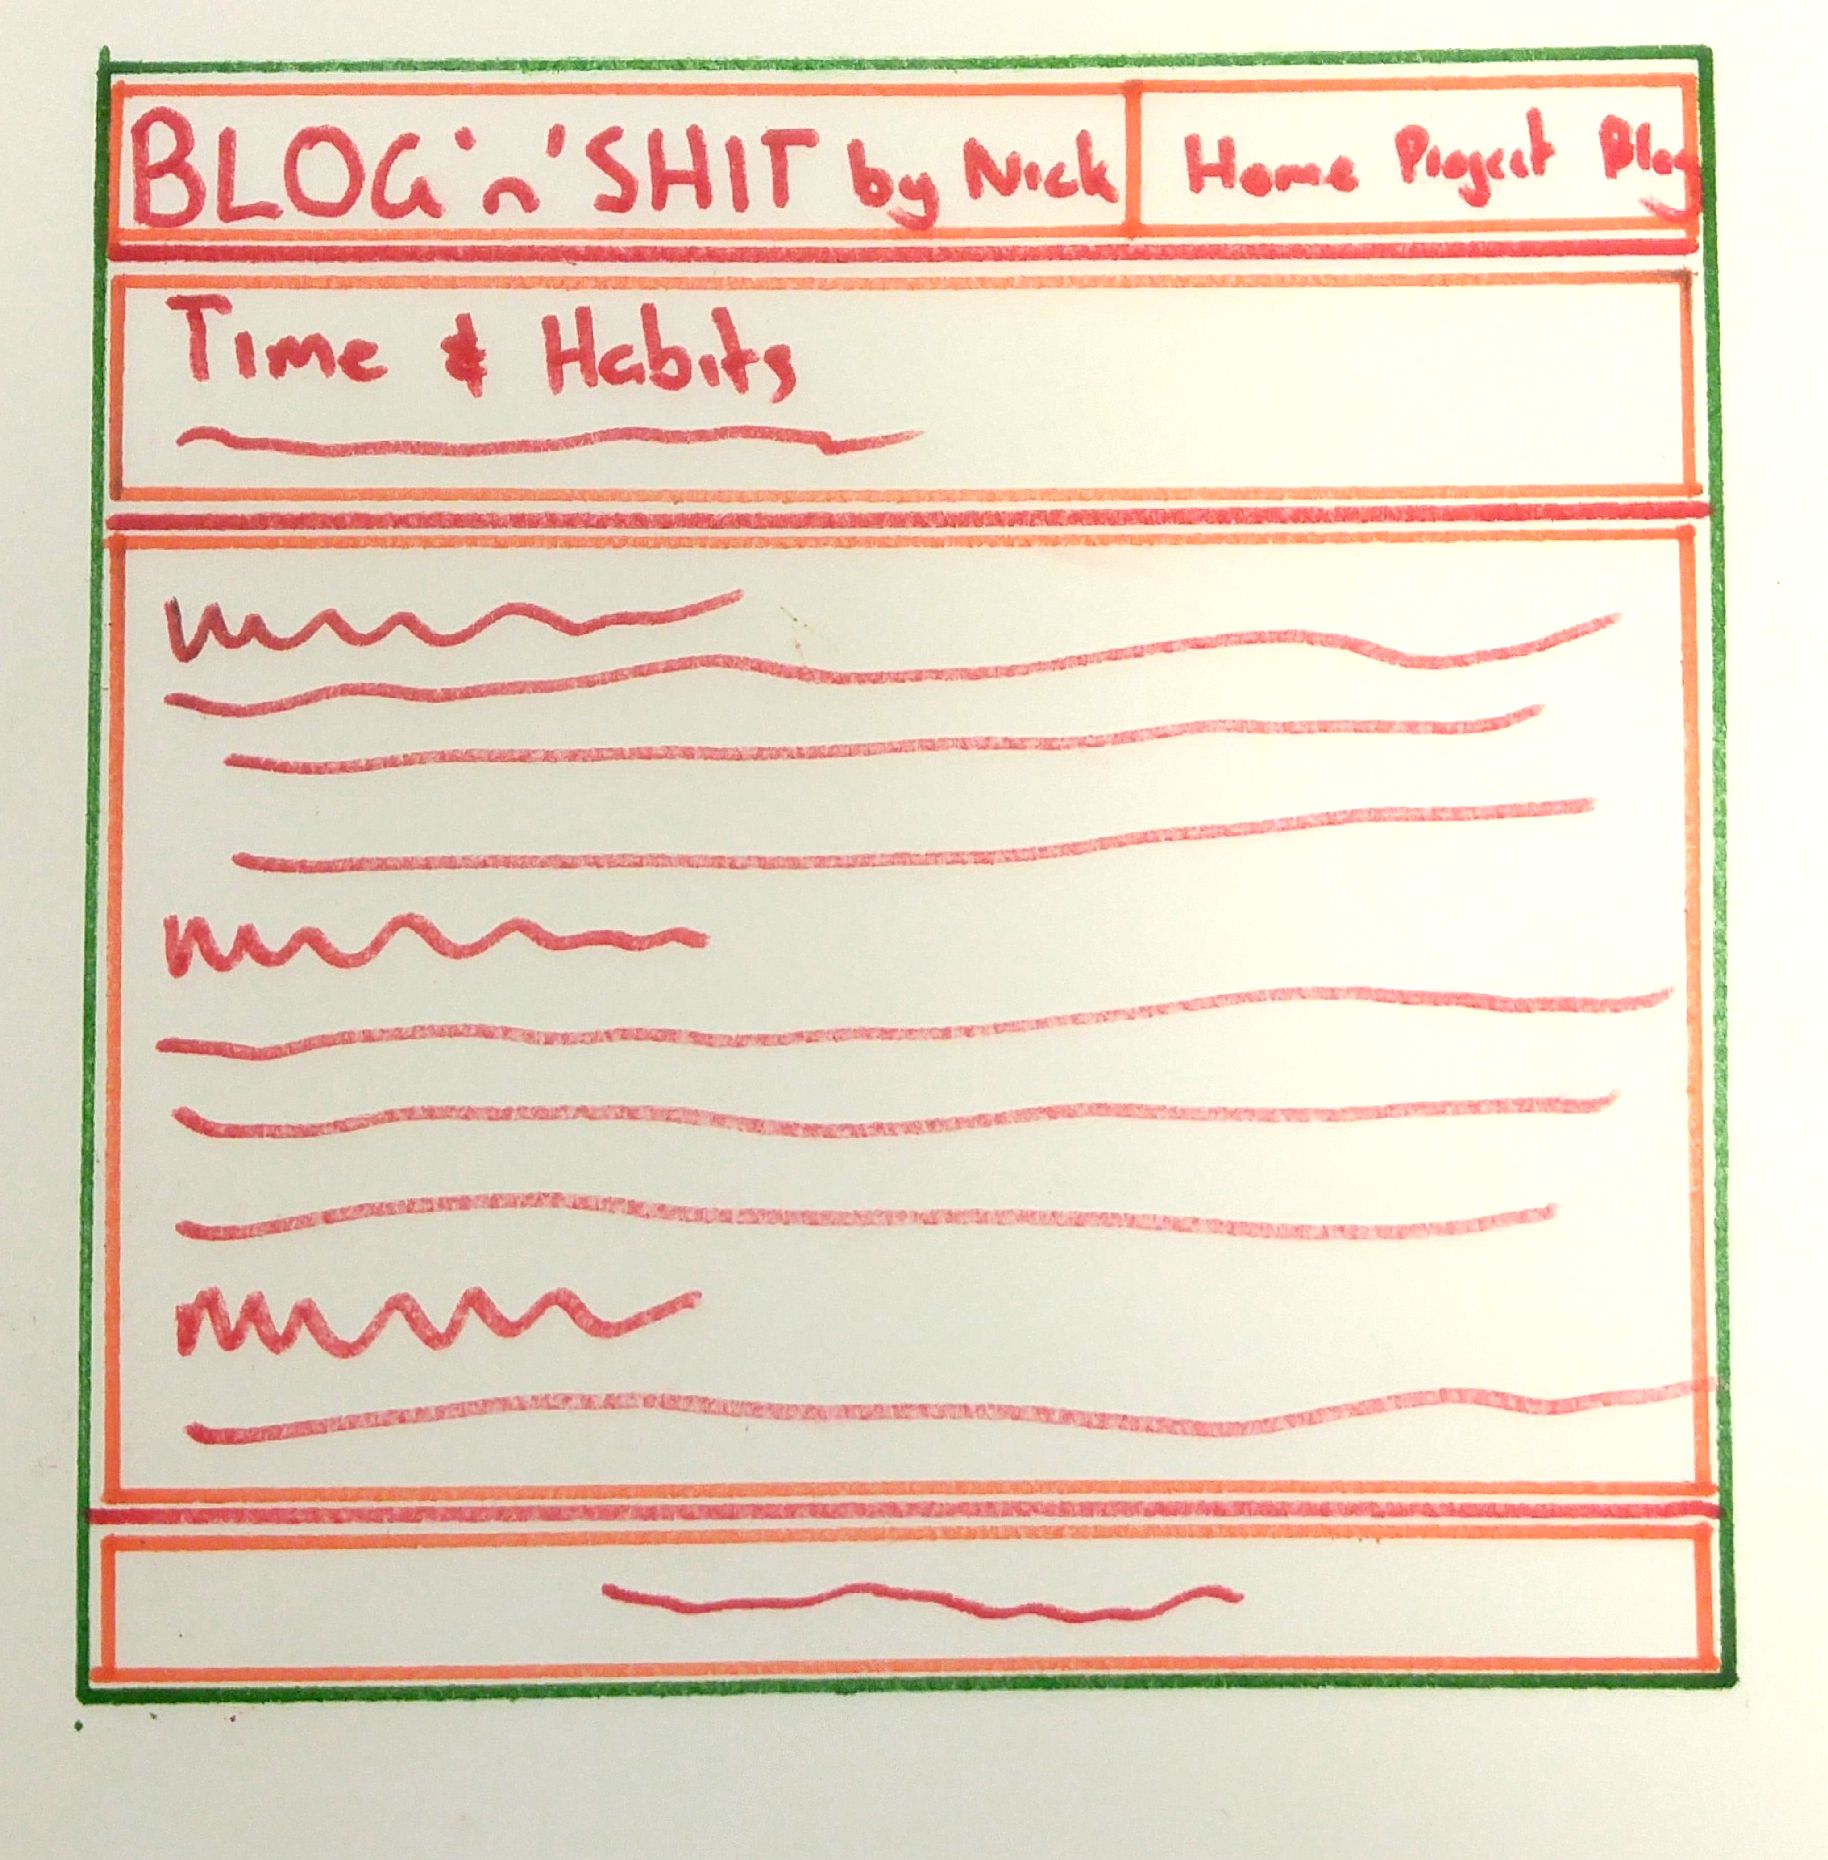 BLOG 'n' SHIT by Nick
Home Project Blog
Time & Habits